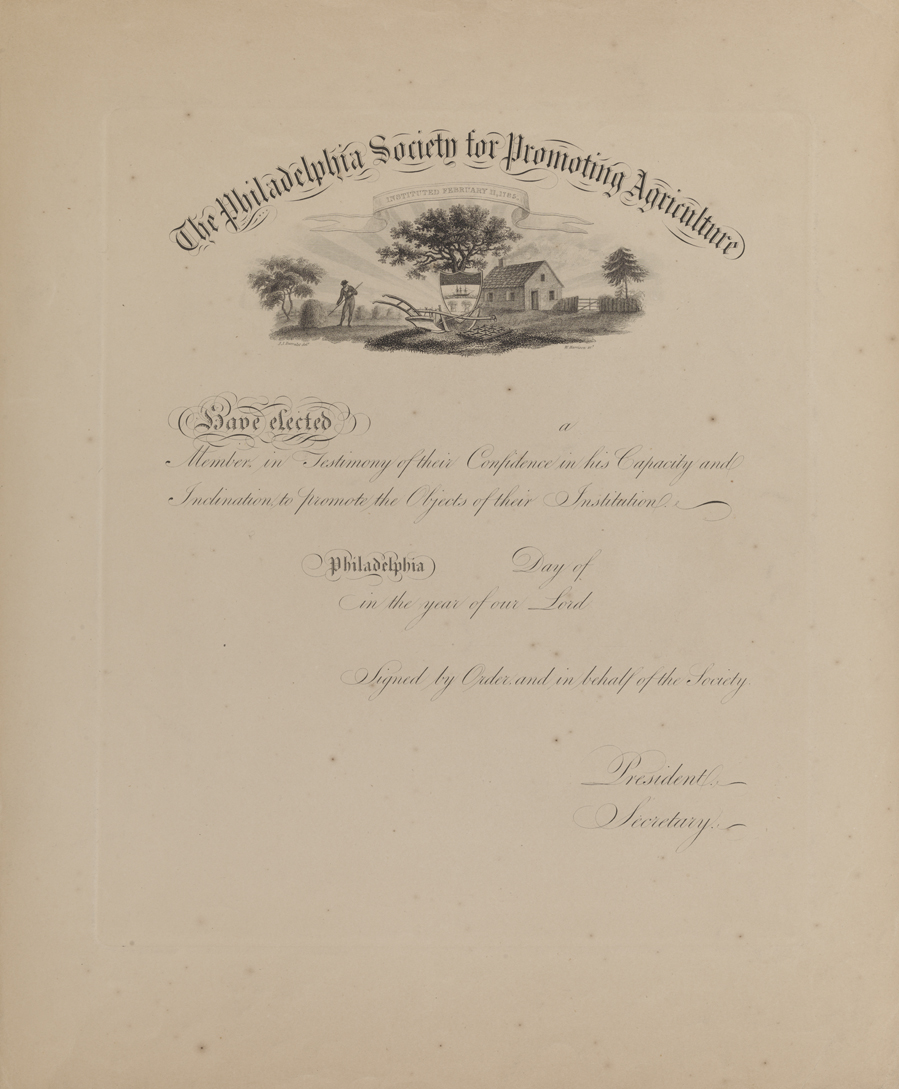 The Philadelphia Society for Promoting Agriculture
INSTITUTED FEBRUARY 11, 1785.
Have elected a
Member, in Testimony of their Confidence in his Capacity and
Inclination, to promote the Objects of their Institution.
Philadelphia Day of
in the year of our Lord
Signed by Order, and in behalf of the Society.
President.
Secretary.